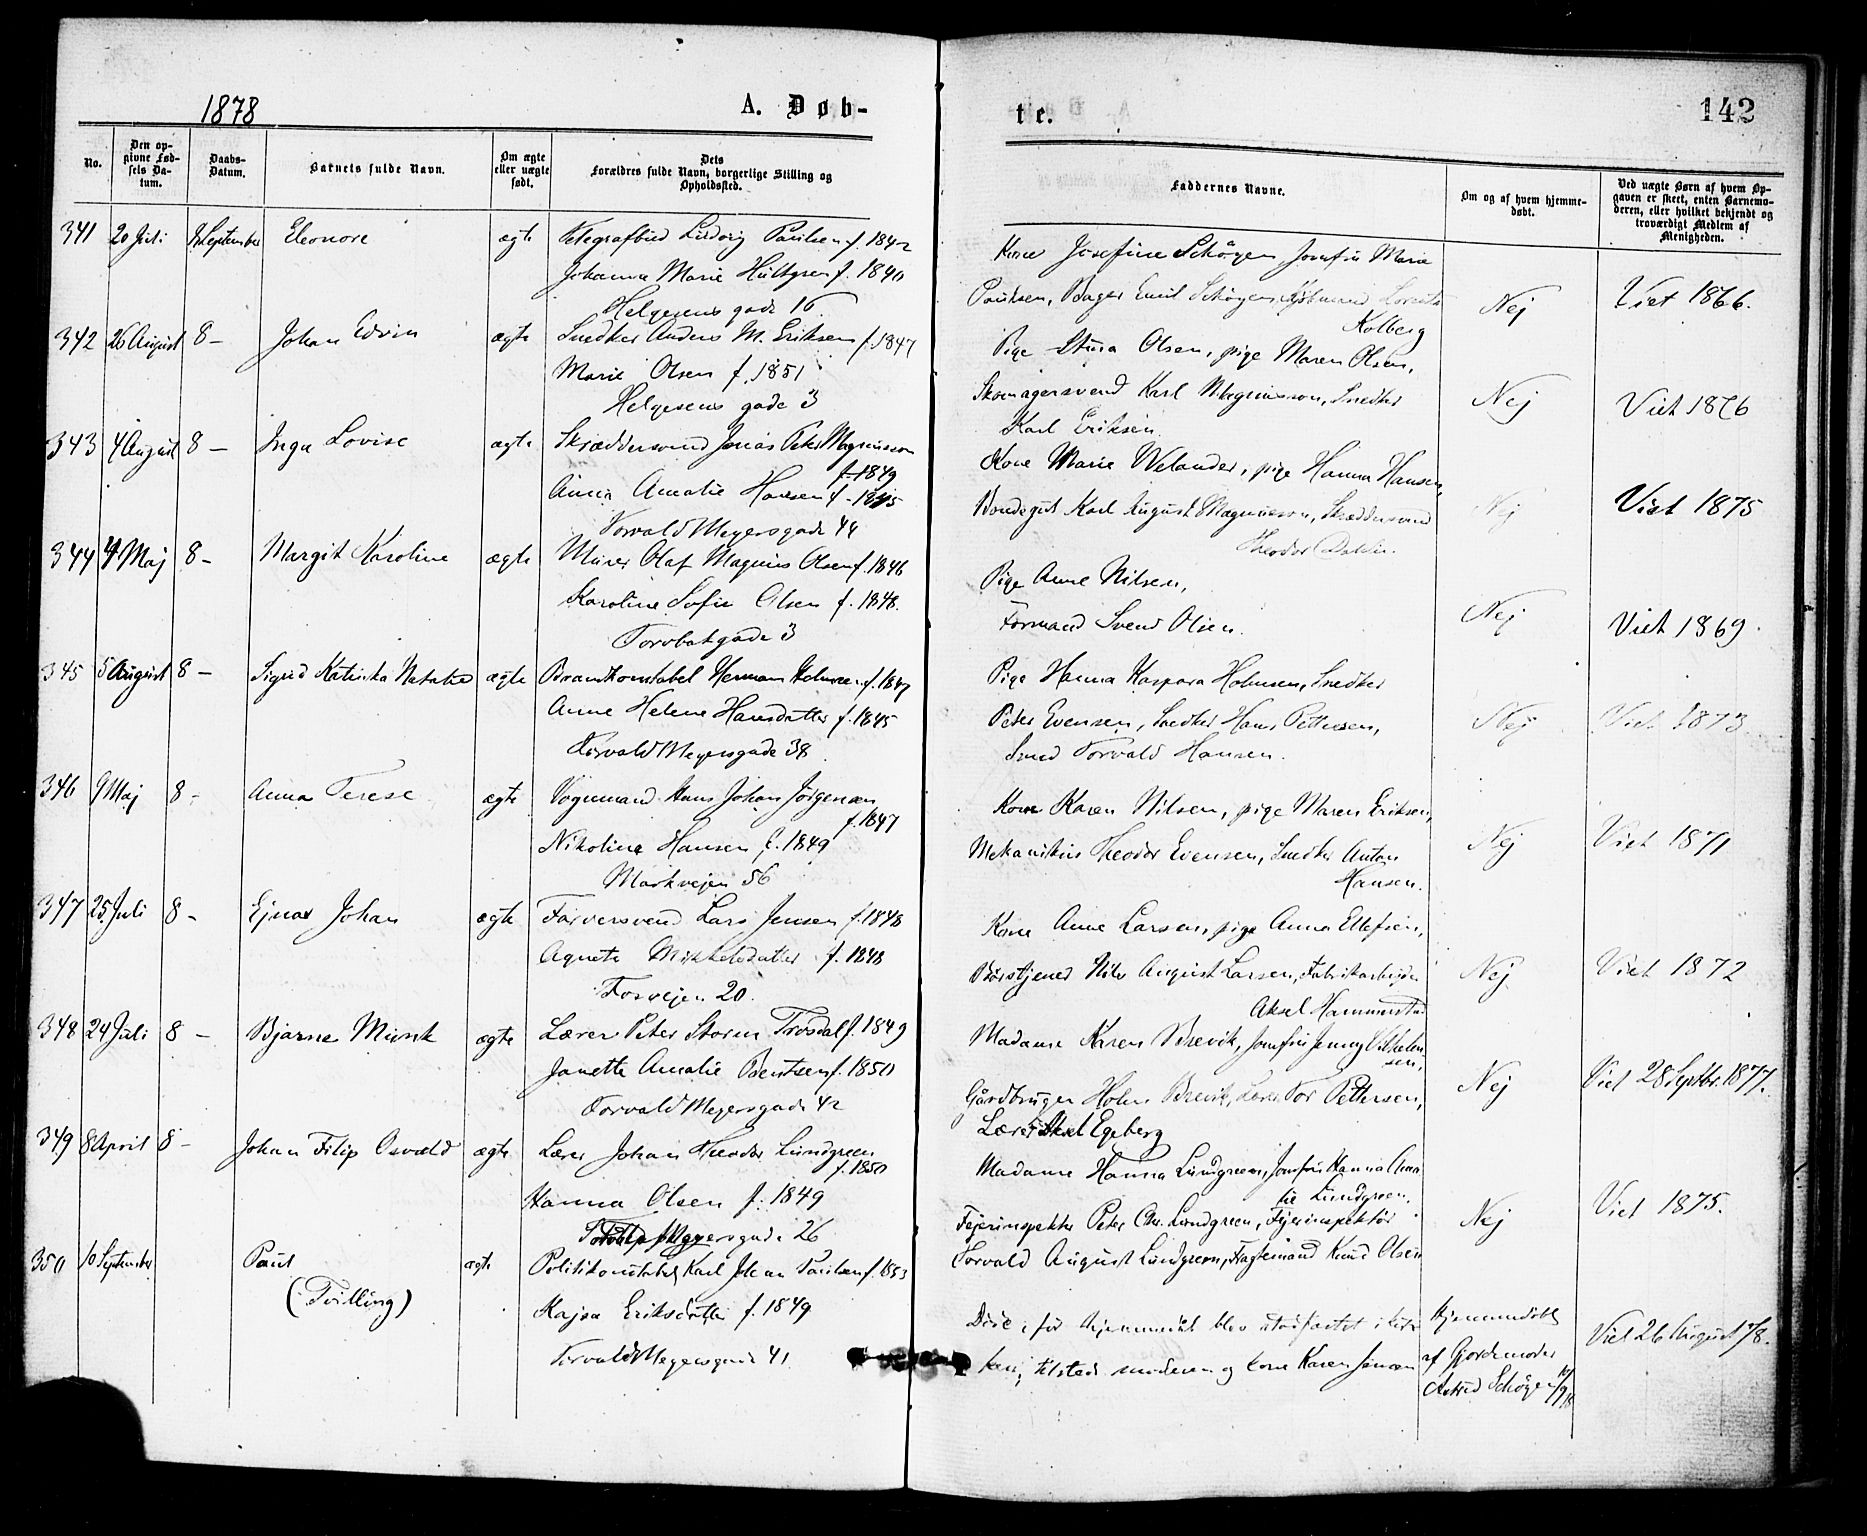 1878
A. Døb-
te.
142
No.
Den op-
givne Fød-
sels Da-
tum.
Daabs-
Datum.
Barnets fulde Navn.
Om ægte
eller uægte
født.
Dets
Forældres fulde Navn, borgerlige Stilling og
Opholdssted.
Faddernes Navne.
Om og af hvem hjemme-
døbt.
Ved uægte Børn af hvem Op-
gaven er skeet, enten Barnemo-
deren, eller hvilket bekjendt og
troværdigt Medlem af
Menigheden.
341 20 Juli 8 September Eleonore ægte Telegrafbud Ludvig Paulsen f. 1842
Johanna Marie Hultgren f. 1840
Helgesens gade 16
Kone Josefine Schøyen, Jomfru Marie
Paulsen, Bager Emil Schøyen, Lorents
Kolberg
Nej
Viet 1866.
342 26 August 8 – Johan Edvin ægte Snedker Anders M. Eriksen f. 1847
Marie Olsen f. 1851
Helgesens gade 3
Pige Stina Olsen, pige Maren Olsen,
Skomagersvend Karl Magnusson, Snedker
Karl Eriksen
Nej
Viet 1876
343 4 August 8 – Inga Lovise ægte Skræddersvend Jonas Peter Magnusson
f. 1849
Anna Amalie Hansen f. 1845
Torvald Meyersgade 44
Kone Marie Welander, pige Hanna Hansen,
Bondegut Karl August Magnusson, Skræddersvend
Theodor
Nej
Viet 1875
344 4 Maj 8 – Margit Karoline ægte Murer Olaf Magnus Olsen f. 1846
Karoline Sofie Olsen f. 1848.
Torvbakgade 3
Pige Anne Nilsen,
Formand Svend Olsen.
Nej
Viet 1869.
345 5 August 8 – Sigrid Katinka Natalie ægte Brandkonstabel Herman Holmsen f. 1847
Anne Helene Hansdatter f. 1845
Torvald Meyersgade 38
Pige Hanna Kaspara Holmsen, Snedker
Peter Evensen, Snedker Hans Pettersen,
Smed Torvald Hansen.
Nej
Viet 1873
346 9 Maj 8 – Anna Terese ægte Vognmand Hans Johan Jørgensen
f. 1847
Nikoline Hansen f. 1849
Markvejen 56
Kone Karen Nilsen, pige Maren Eriksen,
Mekanikus Theodor Evensen, Snedker Anton
Hansen.
Nej
Viet 1871
347 25 Juli 8 – Ejnar Johan ægte Farversvend Lars Jensen f. 1848
Agnete Mikkelsdatter f. 1848
Fosvejen 20.
Kone Anne Larsen, pige Anna Ellefsen,
Børstjener Nils August Larsen, Fabrikarbejder
Aksel Hammerstad
Nej
Viet 1872
348 24 Juli 8 – Bjarne Munk ægte Lærer Peter Storm Trøsdal f. 1849
Janette Amalie Bentsen f. 1850
Torvald Meyersgade 42
Madame Karen Brevik, Jomfru Jenny Vilhelm
sen,
Gårdbruger Holm Brevik, Lærer Tor Pettersen,
Lærer Aksel Egeberg
Nej
Viet 28 Septbr. 1877.
349 8 April 8 – Johan Filip Osvald ægte Lærer Johan Theodor Lundgreen
f. 1850
Hanna Olsen f. 1849
Meyersgade 26
Madame Hanna Lundgreen, Jomfru Hanna Ama
lie Lundgreen,
Fejerinspektør Peter Chr. Lundgreen, Fejerinspektør
Torvald August Lundgreen, Fagtemand Knud Olsen
Nej
Viet 1875.
350 10 September Paul ægte Politikonstabel Karl Johan Paulsen f. 1853
(Tvilling) Kajsa Eriksdatter f. 1849
Torvald Meyersgade 41.
Døde, før hjemmedåb blev stadfæstet i kir
ken; tilstede moderen og kone Karen Jensen
Hjemmedøbt
af Gjordemoder
Astrid Schøyen 10/9 78
Viet 26 August 78.